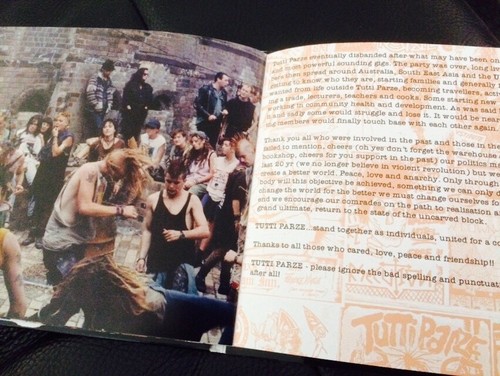 Tutti Parze eventually disbanded after what may have been on
and most powerful sounding gigs. The party was over, long lo
then spread around Australia, South East Asia and the
to know who they are, starting families and generally
wanted from life outside Tutti Parze, becoming travellers,
a trade, lecturers, teachers and cooks. Some starting new
works in community health and development. As was said
and sadly some would struggle and lose it. It would be near
members would finally touch base with each other again
Thank you all who were involved in the past and those in the
failed to mention, cheers (oh yes don't forget the warehouse
bookshop, cheers for you support in the past) our politics m
last 20 yr (we no longer believe in violent revolution) but we
create a better world. Peace, love and anarchy. Only throu
body will this objective be achieved, something we can only
change the world for the better we must change ourselves fo
and we encourage our comrades on the path to realisation
and ultimate, return to the state of the uncarved block.
TUTTI PARZE... stand together as individuals, united for a co
Thanks to all those who cared, love, peace and friendship!!
TUTTI PARZE - please ignore the bad spelling and punctuat
after all!
TUTTI PARZE